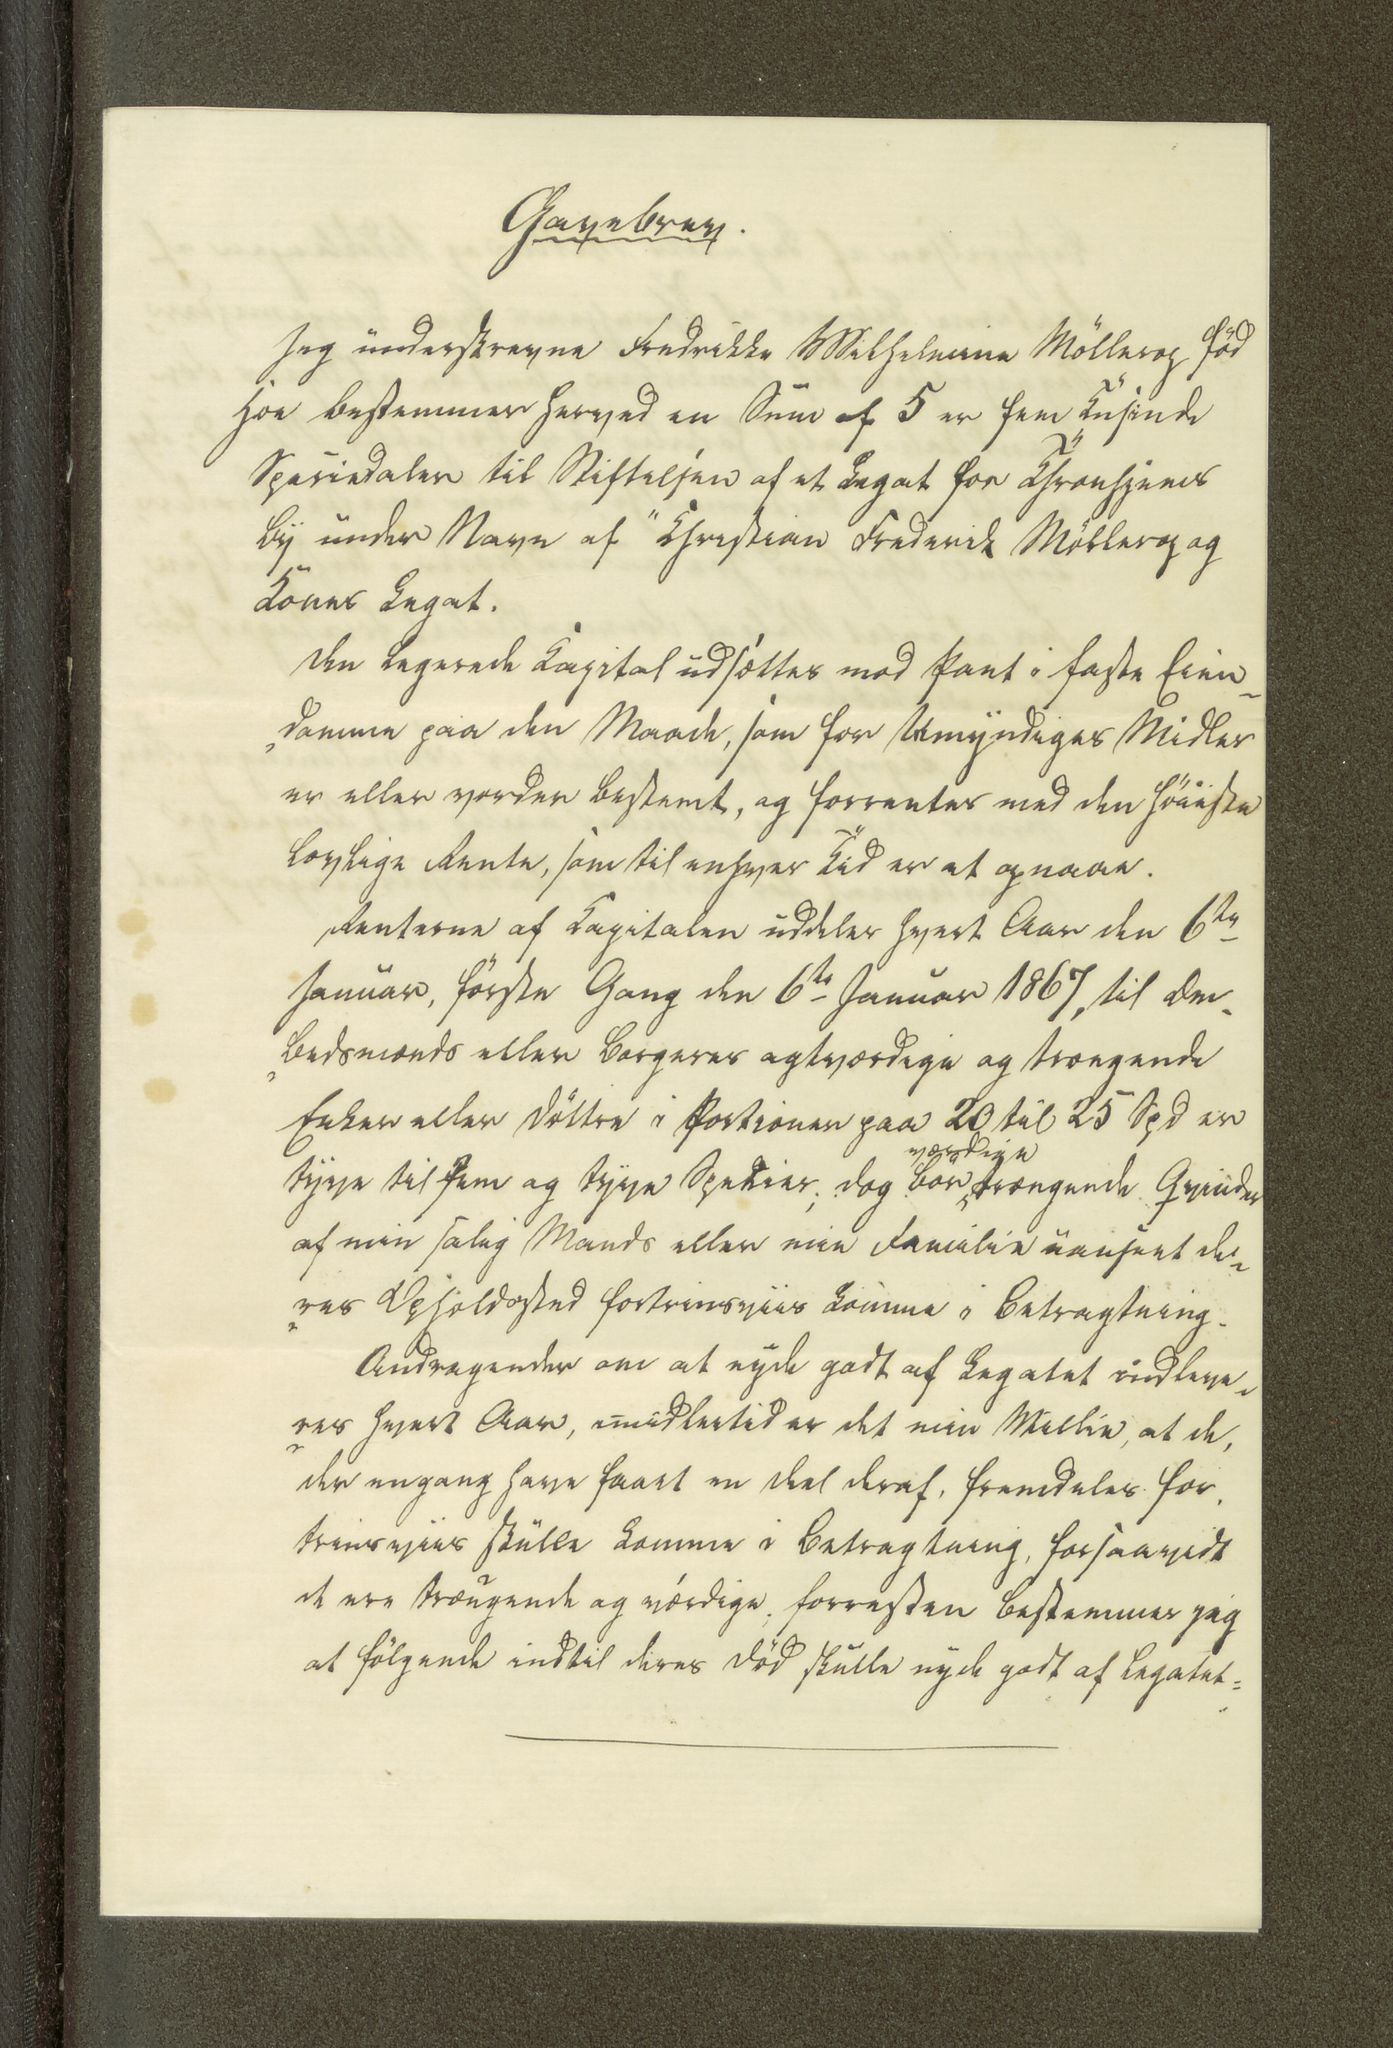 Gavebrev.
Jeg underskrevne Fredrikke Wilhelmine Möllerop föd
Hoe bestemmer herved en Sum af 5 er fem Tusinde
Speciedaler til Stiftelsen af et Legat for Thronhjems
By under Navn af "Christian Frederik Möllerop og
Kones Legat.
Den legerede Kapital udsættes mod Pant i faste Eien-
"domme paa den Maade, som for Umyndiges Midler
er eller vorder bestemt, og forrentes med den höieste
lovlige Rente, som til enhver Tid er at opnaae.
Renterne af Kapitalen uddeles hvert Aar den 6te
Januar, förste Gang den 6te Januar 1867, til Em-
"bedsmænds eller Borgeres agtværdige og trængende
Enker eller Döttre i Portioner paa 20 til 25 Spd er
værdige
tyve til fem og tyve Species, dog bör trængende Qvinder
af min salig Mands eller min Familie uanseet de-
"res Opholdssted fortrinsviis komme i Betragtning.
Andragender om at nyde godt af Legatet indleve-
"res hvert Aar, imidlertid er det min Villie, at de,
der engang have faaet en Deel deraf, fremdeles for-
trinsviis skulle komme i Betragtning, forsaavidt
de ere trængende og værdige, forresten bestemmer jeg
at fölgende indtil deres Död skulle nyde godt af Legatet=